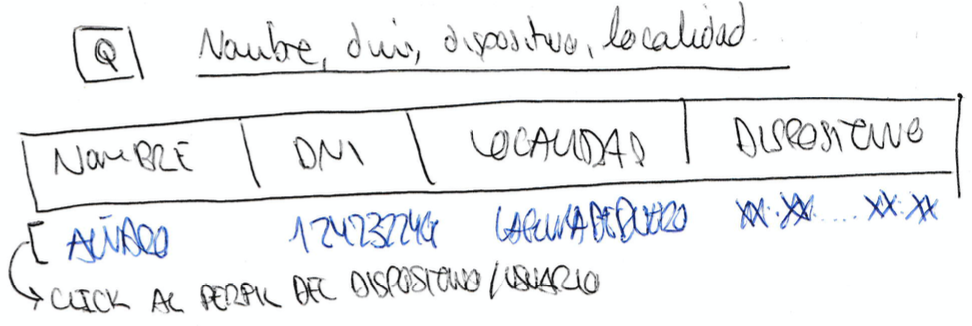 Nombre, dni, dispositivo, localidad.
NOMBRE DNI LOCALIDAD DISPOSITIVO
ALVARO 12423224G LAGUNA DE DUERO XX:XX.....XX:XX
CLICK AL PERFIL DEL DISPOSITIVO/USUARIO